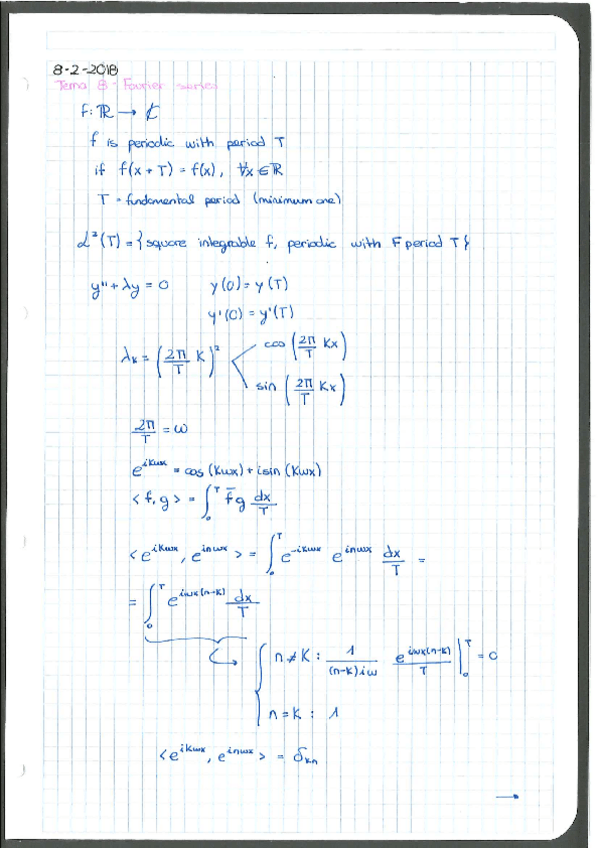 8-2-2018
Tema 8 - Fourier series
f: ℝ → ℂ
f is periodic with period T
if f(x+T) = f(x), ∀x ∈ ℝ
T = fundamental period (minimum one)
L²(T) = {square integrable f, periodic with F period T}
y'' + λy = 0 y(0) = y(T)
y'(0) = y'(T)
λ_K = (2π/T K)² < cos(2π/T Kx)
sin(2π/T Kx)
2π/T = ω
e^{iKωx} = cos(Kωx) + i sin(Kωx)
<f, g> = ∫₀^T f̄ g dx/T
<e^{iKωx}, e^{inωx}> = ∫₀^T e^{-iKωx} e^{inωx} dx/T =
= ∫₀^T e^{iωx(n-K)} dx/T
n ≠ K : 1/((n-K)iω) e^{iωx(n-K)}/T |₀^T = 0
n = K : 1
<e^{iKωx}, e^{inωx}> = δ_{Kn}
→